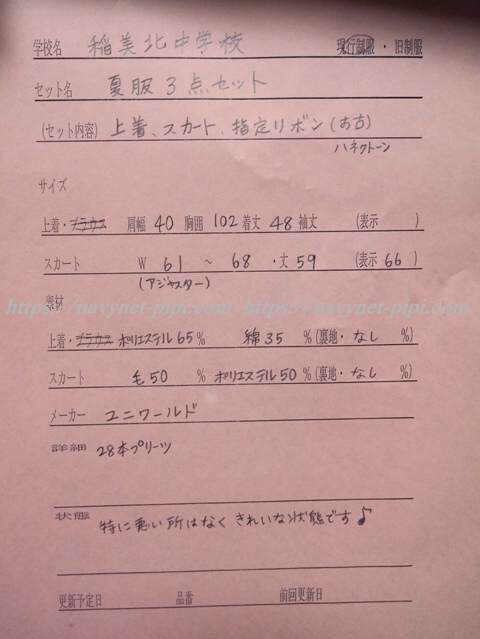 学校名 稲美北中学校 現行制服・旧制服
セット名 夏服3点セット
(セット内容) 上着、スカート、指定リボン(お古)
ハネクトーン
サイズ
上着・ブラウス 肩幅 40 胸囲 102 着丈 48 袖丈 (表示 )
スカート W 61 ~ 68 ・丈 59 (表示 66)
(アジャスター)
https://navynet-pipi.com/ https://navynet-pipi.com/
素材
上着・ブラウス ポリエステル65% 綿35 %(裏地・なし %)
スカート 毛50 % ポリエステル50%(裏地・なし %)
メーカー ユニワールド
詳細 28本プリーツ
状態 特に悪い所はなく きれいな状態です♪
更新予定日 品番 前回更新日